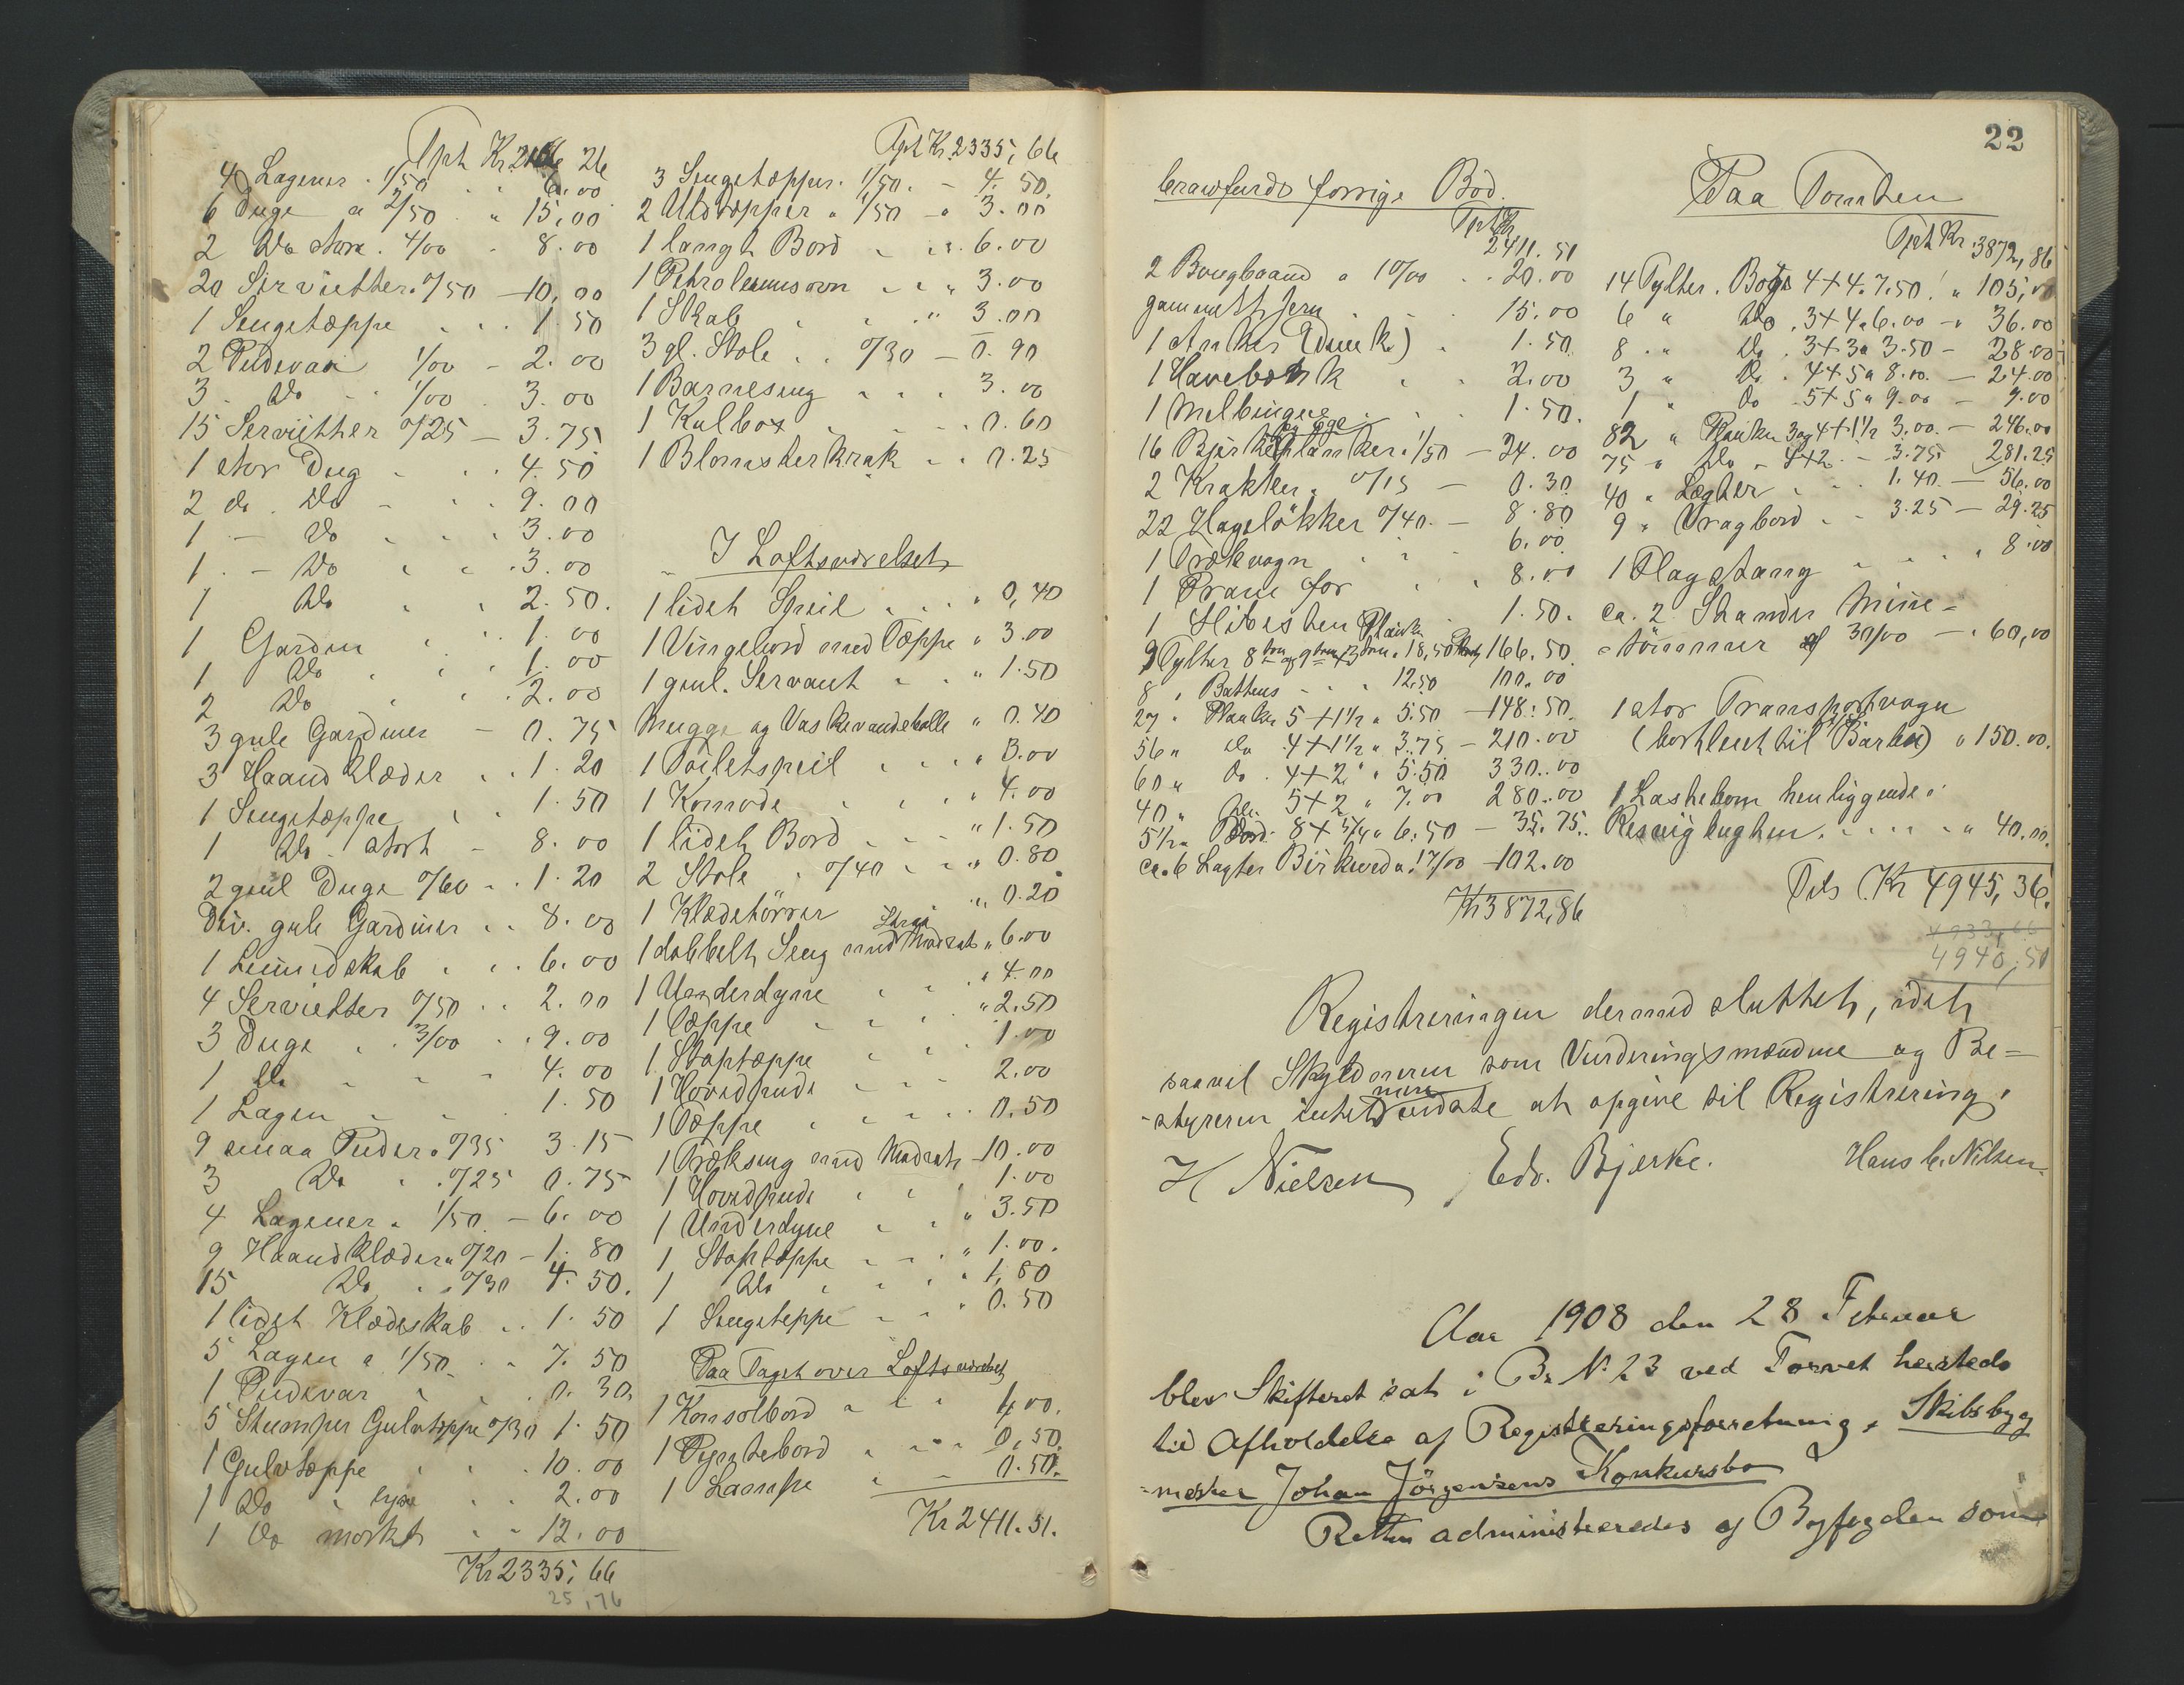 Tpt Kr. 26
4 Lagener . 1/50 . . 6.00
6 Duge a 2/50 . " 15,00
2 Do store . 4/00 - 8.00
20 Servietter . 0/50 - 10,00
1 Sengetæppe . . . 1.50
2 Pudevar 1/00 - 2.00
3 - Do - . 1/00 . 3.00
15 Servietter 0/25 - 3.75
1 stor Dug . . . 4.50
2 do. Do - . . 9.00
1 - Do . . . 3.00
1 - Do . . . 3.00
1 Do . . 2.50.
1 Gardin . . . 1.00
1 Do . . . 1.00
2 Do . . . 2.00
3 gule Gardiner - 0.75
3 Haandklæder . . 1.20
1 Sengetæppe . . 1.50
1 Do. stort - 8.00
2 gul Duge 0/60 . . 1.20
Div. gule Gardiner . . 8.00
1 Linnedskab . . . 6.00
4 Servietter 0/50 . . 2.00
3 Duge . . 3/00 . . 9.00
1 Do - - - 4.00
1 Lagen - - . 1.50
9 smaa Puder . 0/35 3.15
3 Do . . 0/25 0.75
4 Lagener . 1/50 - 6.00
9 Haandklæder " 0/20 - 1.80
15 Do . . 0/30 4.50.
1 lidet Klædeskab . . 1.50
5 Lagen a 1/50 . . 7.50
1 Pudevar . . . 0.30
5 Stumper Gulvtæppe 0/30 1.50
1 Gulvtæppe . . . 10.00
1 Do " lyse . . 2.00
1 Do mørkt . . 12.00
Kr 2335,66
25,76
Tpt Kr. 2335,66
3 Sengetæpper . 1/50 . - 4.50.
2 Uldtæpper . 1/50 - " 3.00
1 langt Bord . . . 6.00
1 Petroleumsovn . . " 3.00
1 Skab . . . " 3.00
3 gl. Stole . . 0/30 - 0.90
1 Barneseng . . . 3.00
1 Kulbox . . . . 0.60
1 Blomsterkrak . . 0.25
I Loftsværelset
1 lidet Speil . . . " 0,40
1 Vingebord med Tæppe " 3.00
1 gul. Servant . . " 1.50
Mugge og Vaskevandsbolle " 0.40
1 Toiletspeil . . . " 3.00
1 Komode . . . " 4.00
1 lidet Bord . . . " 1.50
2 Stole . 0/40 . . " 0.80
1 Klædetörrer . . " 0.20
1 dobbelt Seng med Madrats " 6.00
1 Underdyne . . . " 4.00
1 Tæppe . . . " 2.50
1 Stoptæppe . . . 1.00
1 Hovedpude . . . 2.00
1 Tæppe . . . . 0.50
1 Trækseng med Madrats - 10.00
1 Hovedpude . . . 1.00
1 Underdyne . . " 3.50
1 Stoptæppe . . " 1.00.
1 Do . . . " 1,80
1 Sengeteppe . . " 0.50
Paa Taget over Loftsværelset
1 Konsolbord . . " 4,00.
1 Pyntebord . . . 0,50.
1 Lampe . - 0.50.
Kr 2411.51.
22
Crawfurds forrige Bod.
Tpt Kr.
2411.51
2 Bougbaand a 10/00 . . 20.00
gammelt Jern . . . 15.00
1 Anker (Dunk) . 1.50
1 Havebænk . . 2.00
1 Melbinge . . . 1.50.
og Ege
16 Bjerkeplanker . 1/50 - 24.00
2 Krakker . 0/15 - 0.30
22 Hageløkker 0/40. - 8.80
1 Trækvogn . . . 6.00
1 Pram for . . . 8.00
1 Slibesten . . 1.50.
Planker
9 Tylter 8 tom og 9 tom + 3 tom . 18,50 166.50.
8 . Battens - . . 12.50 100.00
27 " Planker 5 + 1½ " 5.50 - 148.50.
56 " Do 4 + 1½ " 3.75 - 210.00
60 " Do . 4 + 2 " . 5.50 330.00
40 " Do. 5 + 2 " 7.00 280.00
5½ " Bord. 8 + 5/4 " 6.50 - 35.75.
ca. 6 Lagter Birkeved a 17/00 - 102.00
Kr 3872,86
Paa Tomten
Tpt Kr. 3872,86
14 Tylter . Bord 4+4 . 7.50 . " 105,00
6 " Do . 3+4 . 6.00 - " 36.00
8 . " Do . 3+3 a 3.50 - 28.00
3 " Do . 4+5 a 8.00. - 24.00
1 " Do . 5+5 a 9.00 - 9.00
82 " Planker 3 og 4 + 1½ 3.00. - 246.00
75 - Do - 4+2 - 3.75 281.25
40 " Lægter . . . 1.40. - 56.00
9 " Vragbord . . 3.25 - 29.25
1 Flagstang . . . . 8.00
ca. 2 Stander Mine=
=tömmer af 30/00 - . 60,00
1 stor Transportvogn
(bortleiet til Barbu) " 150.00.
1 Lastebom henliggende i
Resvigbugten. . . . . " 40.00.
Tils Kr 4945,36.
4940,51
Registreringen dermed sluttet, idet
saavel Skyldneren som Vurderingsmændene og Be=
mere
-styreren intet vidste at opgive til Registrering.
H Nielsen Edv. Bjerke. Hans C. Nilsen.
Aar 1908 den 28 Februar
blev Skifteret sat i B. N. 23 ved Torvet hersteds
til Afholdelse af Registreringsforretning i Skibsbyg
-mester Johan Jörgensens Konkursbo
Retten administreredes af Byfogden som